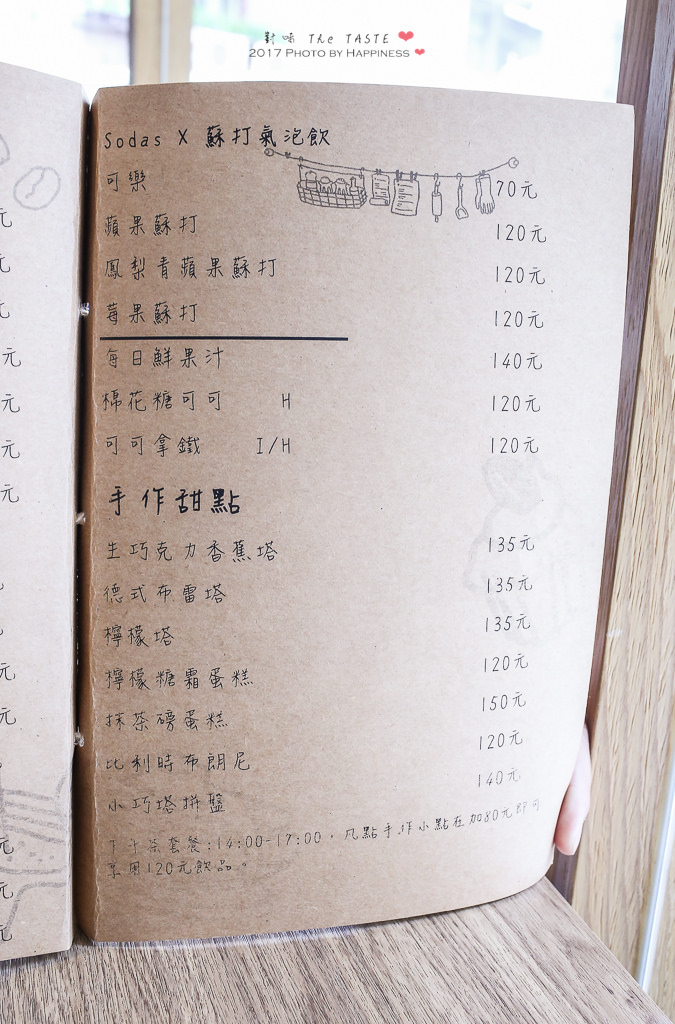 對味 The TASTE
2017 PHOTO BY HAPPINESS
Sodas X 蘇打氣泡飲
可樂 70元
蘋果蘇打 120元
鳳梨青蘋果蘇打 120元
莓果蘇打 120元
每日鮮果汁 140元
棉花糖可可 H 120元
可可拿鐵 I/H 120元
手作甜點
生巧克力香蕉塔 135元
德式布雷塔 135元
檸檬塔 135元
檸檬糖霜蛋糕 120元
抹茶磅蛋糕 150元
比利時布朗尼 120元
小巧塔拼盤 140元
下午茶套餐:14:00-17:00，凡點手作小點在加80元即可
享用120元飲品。
元
元
元
元
元
元
元
元
元
元
元
元